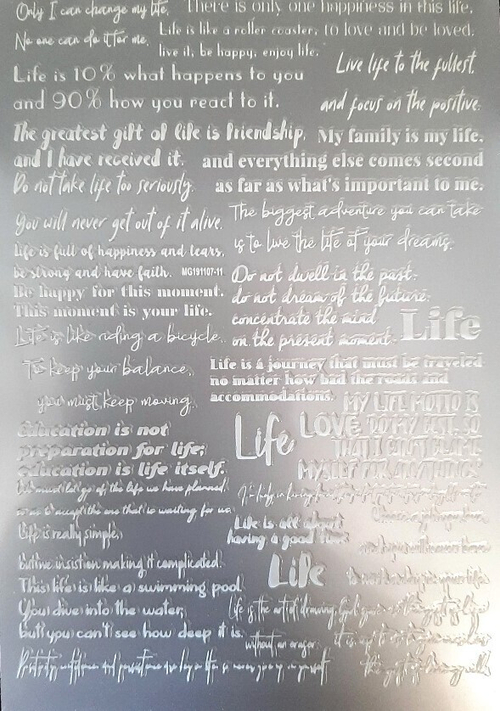 Only I can change my life.
No one can do it for me.
There is only one happiness in this life,
to love and be loved.
Life is like a roller coaster,
live it, be happy, enjoy life.
Life is 10% what happens to you
and 90% how you react to it.
Live life to the fullest,
and focus on the positive.
The greatest gift of life is friendship,
and I have received it.
My family is my life,
and everything else comes second
as far as what's important to me.
Do not take life too seriously.
You will never get out of it alive.
The biggest adventure you can take
is to live the life of your dreams.
Life is full of happiness and tears,
be strong and have faith.
MG191107-11
Be happy for this moment.
This moment is your life.
Do not dwell in the past,
do not dream of the future,
concentrate the mind
on the present moment.
Life
Life is like riding a bicycle.
To keep your balance,
you must keep moving.
Life is a journey that must be traveled
no matter how bad the roads and
accommodations.
Education is not
preparation for life;
education is life itself.
Life
MY LIFE MOTTO IS
LOVE, DO MY BEST, SO
THAT I CAN'T BLAME
MYSELF FOR ANYTHING.
We must let go of the life we have planned,
so as to accept the one that is waiting for us.
Life is really simple,
but we insist on making it complicated.
Life is all about
having a good time
Life
This life is like a swimming pool.
You dive into the water,
but you can't see how deep it is.
Life is the art of drawing
without an eraser.